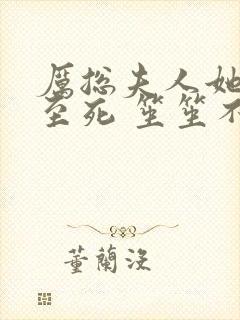 厲总夫人她
至死 笙笙不
董蘭没